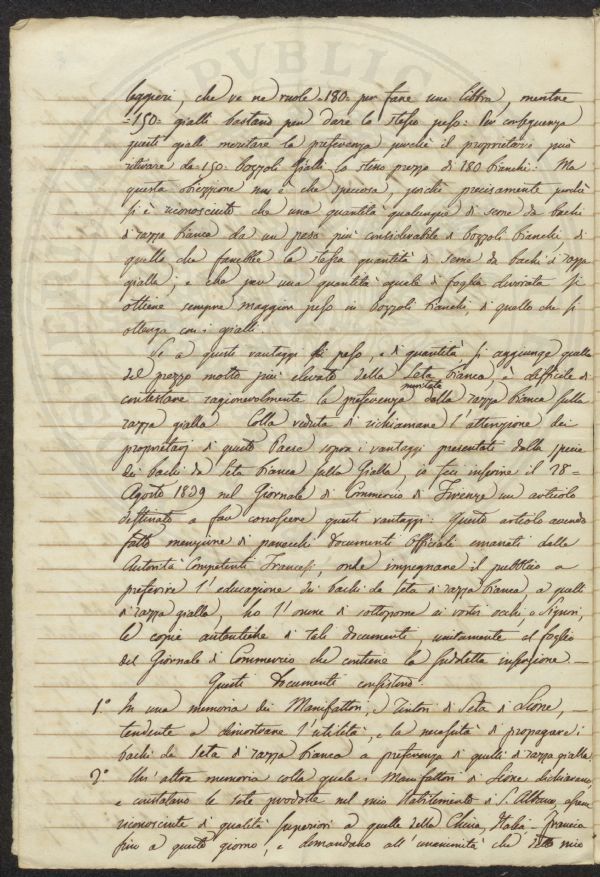 leggieri, che ve ne vuole =180= per fare una libbra, mentre
=150= gialli bastano per dare lo stesso peso: Per conseguenza
questi gialli meritare la preferenza perchè il proprietario può
ritirare da =150= bozzoli Gialli lo steso prezzo di 180 bianchi: Ma
questa obiezzione non è che speciosa, poichè precisamente perchè
si è riconosciuto che una quantità qualunque di seme da bachi
di razza bianca da un peso più considerabile di bozzoli bianchi, di
quello che farebbe la stessa quantità di seme da bachi di razza
gialla; e che per una quantità eguale di foglia divorata si
ottiene sempre maggior peso in bozzoli bianchi, di quello che si
ottenga con i gialli.
Se a questi vantaggi di peso, e di quantità si aggiunge quello
del prezzo molto più elevato della Seta bianca, è difficile di
contestare ragionevolmente la preferenza meritata dalla razza bianca sulla
razza gialla. Colla veduta di richiamare l'attenzione dei
proprietarj di questo Paese sopra i vantaggi presentati dalla specie
dei bachi da Seta bianca sulla Gialla, io feci inserire il 28=
Agosto 1839 nel Giornale di Commercio di Firenze un articolo
destinato a far conoscere questi vantaggi: Questo articolo avendo
fatto menzione di parecchi documenti Officiali emanati dalle
Autorità Competenti Francesi, onde impegnare il pubblico a
preferire l'educazione dei bachi da Seta di razza bianca, a quelli
di razza gialla, ho l'onore di sottoporre ai vostri occhi, o Signori,
le copie autentiche di tali documenti, unitamente al foglio
del Giornale di Commercio che contiene la suddetta inserzione. —
Questi Documenti consistono:
1° In una memoria dei Manifattori, e Tintori di Seta di Lione, —
tendente a dimostrare l'utilità, e la necessità di propagare i
bachi da Seta di razza bianca a preferenza di quelli di razza gialla.
2° Un'altra memoria colla quale i Manifattori di Lione dichiarano,
e constatano le sete prodotte nel mio stabilimento di S. Albano, essere
riconosciute di qualità superiori a quelle della China, Italia, Francia
fino a questo giorno, e domandano all'unanimità che detto mio